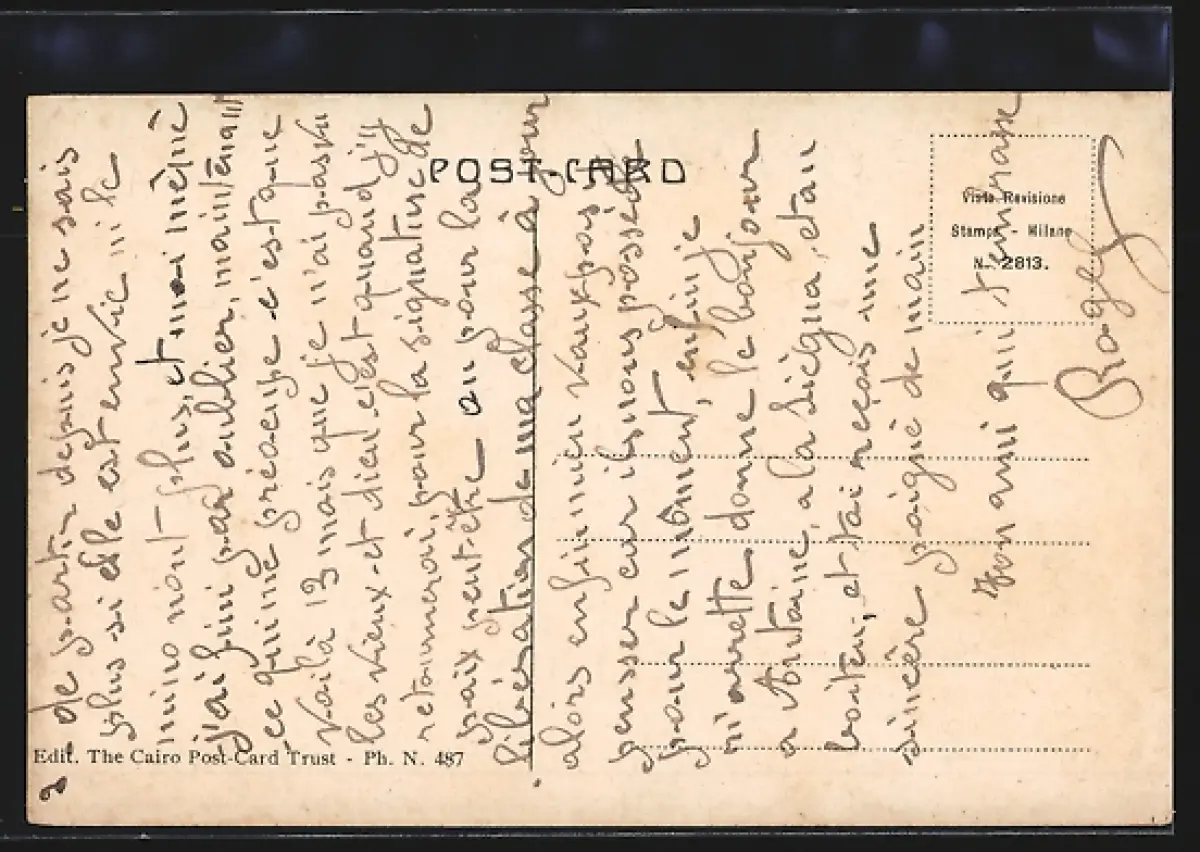 POST-CARD
Vista Revisione
Stampa - Milano
N. 2813.
Edit. The Cairo Post-Card Trust - Ph. N. 487
2
de partir depuis je ne sais
plus si elle est envie ni le
mino nont plus, et moi même
j'ai fini par oublier, maintenant
ce qui me préocupe c'est que
voilà 13 mois que je n'ai pas vu
les vieux et dieu c'est quand j'y
retournerai, pour la signature de
paix peut-être ou pour la
libération de ma classe à jour
alors enfin mieu vaux pas y
pensser car ils nous possède
pour le moment, enfin je
m'arrette donne le bonjour
a Antoine, a la Siegna, et au
boiteu, et toi reçois une
sincère poigné de main
Ton ami qui t'enbrasse
Roger